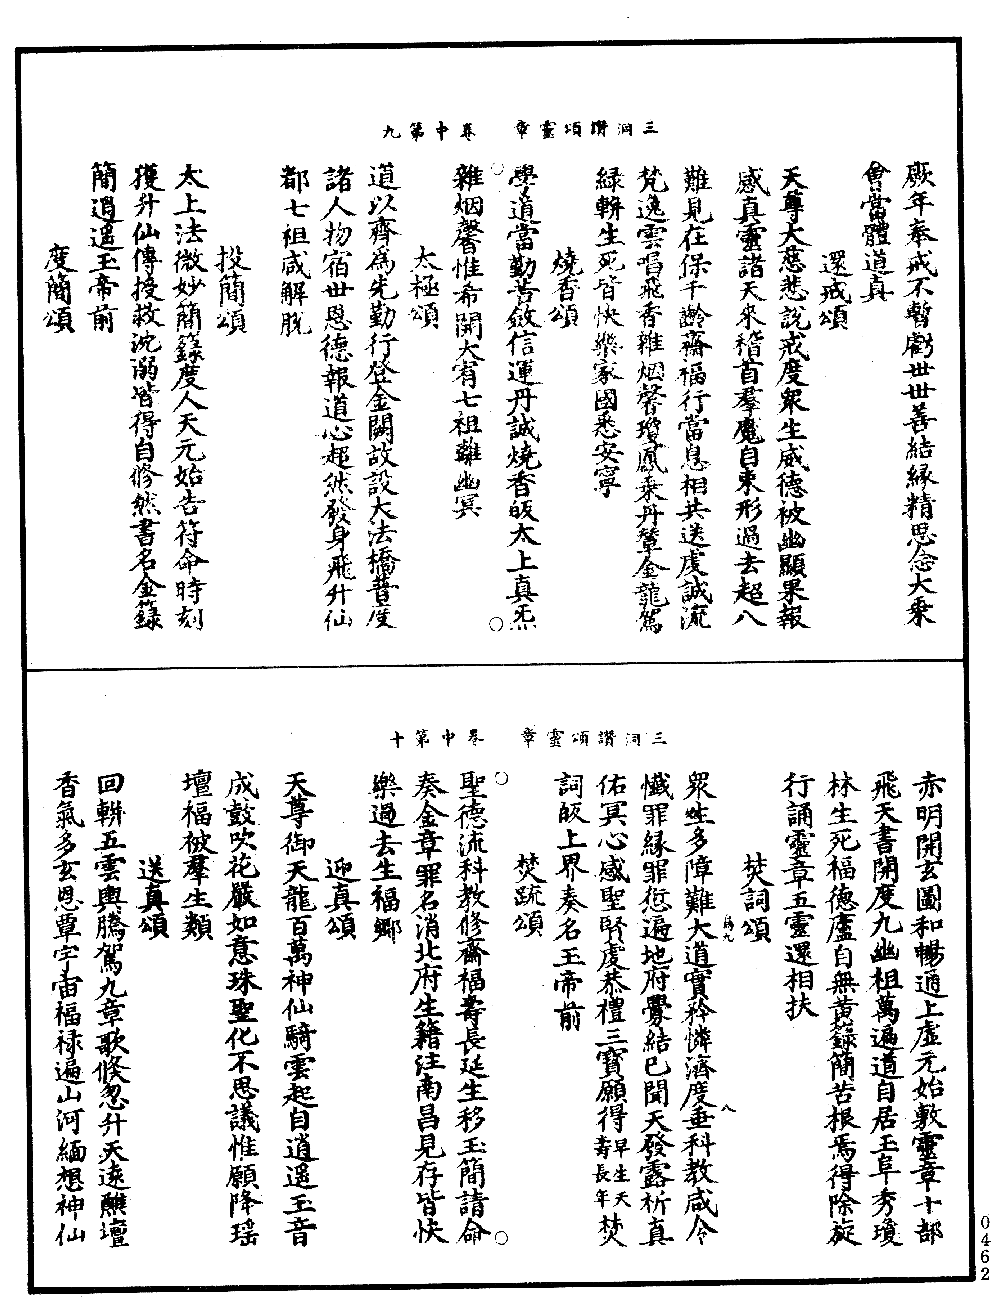 三洞讚頌靈章　卷中第九
厥年奉戒不暫虧世世善結緣精思念大乘
會當體道真
還戒頌
天尊大慈悲說戒度眾生威德被幽顯果報
感真靈諸天來稽首羣魔自束形過去超八
難見在保千齡齋福行當息相共送虔誠流
梵逸雲唱飛香雜烟馨瓊鳳乘丹輦金龍駕
綠軿生死皆快樂家國悉安寧
燒香頌
學道當勤苦斂信運丹誠燒香皈太上真炁
雜烟馨惟希開大有七祖離幽冥
太極頌
道以齋為先勤行登金闕故設大法橋普度
諸人物宿世恩德報道心超然發身飛升仙
都七祖咸解脫
投簡頌
太上法微妙簡錄度人天元始告符命時刻
獲升仙傳授救沈溺皆得自修然書名金籙
簡逍遥玉帝前
度簡頌
三洞讚頌靈章　卷中第十
赤明開玄圖和暢通上虛元始敷靈章十部
飛天書開度九幽祖萬遍道自居玉阜秀瓊
林生死福德廬自無黃籙簡苦根焉得除旋
行誦靈章五靈還相扶
焚詞頌
眾生多障難大道實矜憐濟度垂科教咸令
懺罪緣罪愆遍地府釁結已聞天發露祈真
佑冥心感聖賢虔恭禮三寶願得早生天壽長年焚
詞皈上界奏名玉帝前
焚䟽頌
聖德流科教修齋福壽長延生移玉簡請命
奏金章罪名消北府生籍注南昌見存皆快
樂過去生福鄉
迎真頌
天尊御天龍百萬神仙騎雲起自逍遥玉音
成鼓吹花嚴如意珠聖化不思議惟願降瑶
壇福被羣生類
送真頌
回軿五雲輿騰駕九章歌倐忽升天遠醮壇
香氣多玄恩覃宇宙福祿遍山河緬想神仙
0462